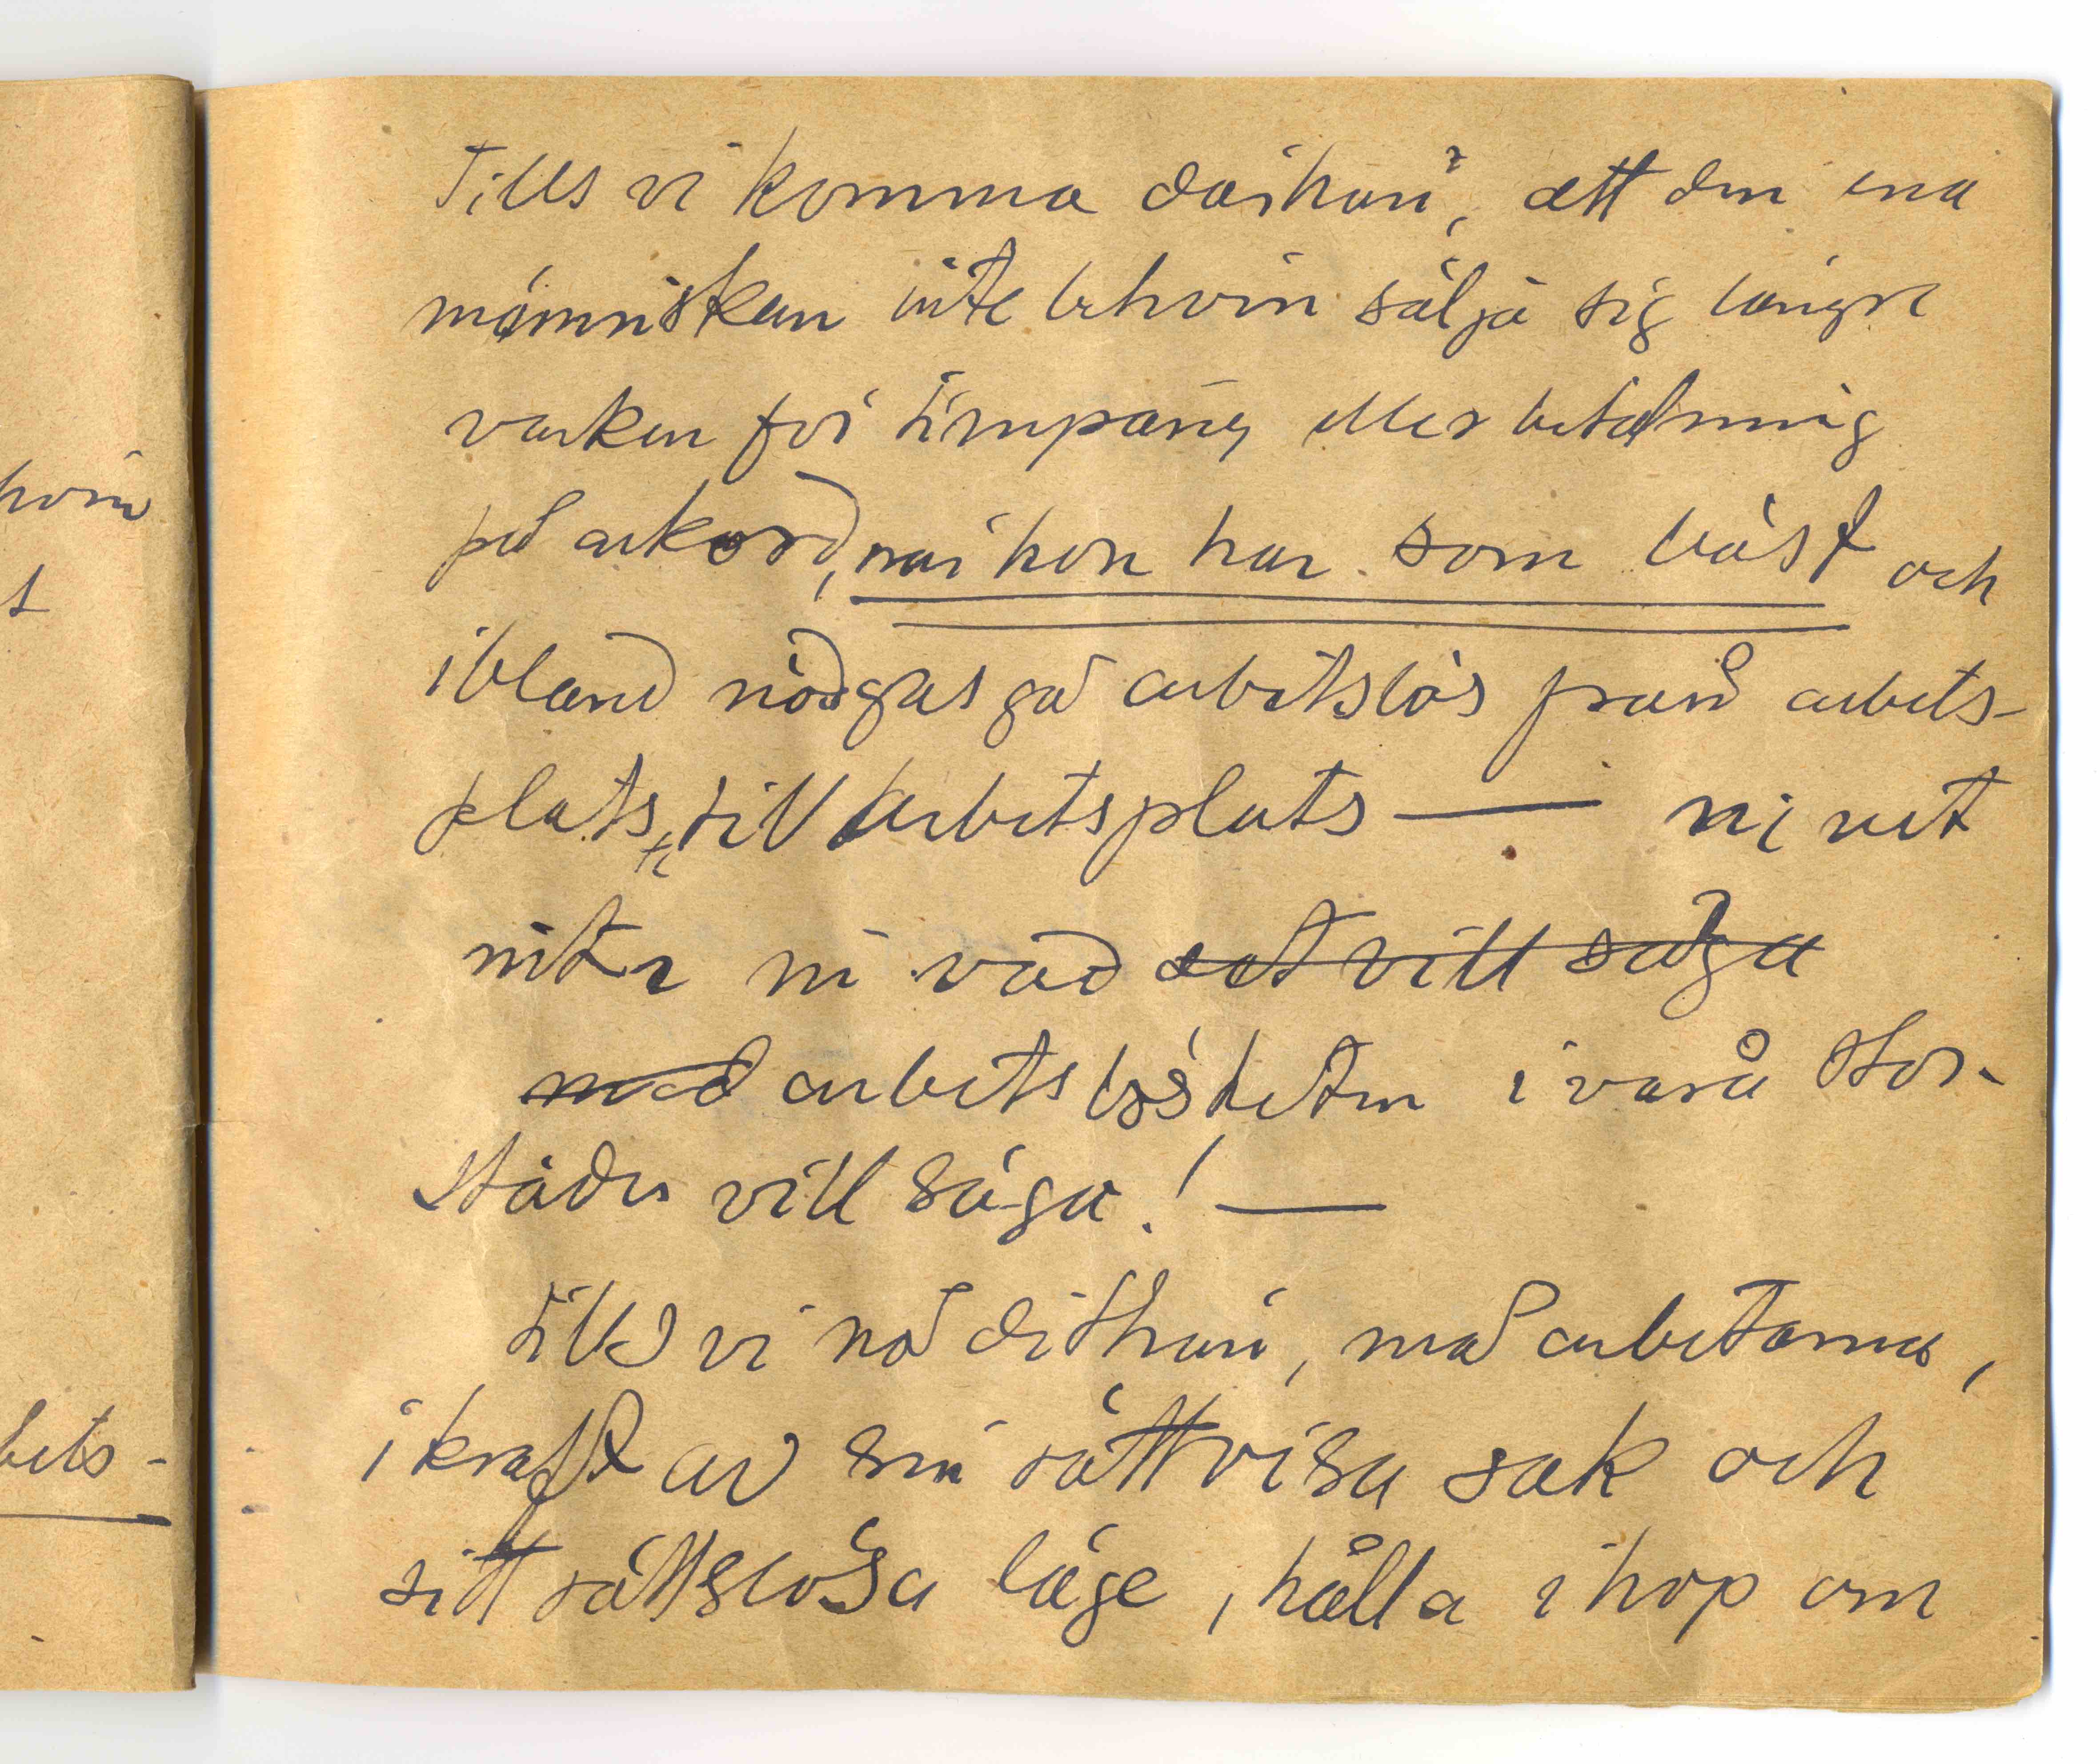 hörn
t
bets-
Tills vi komma därhän, att den ena
människan inte behöver sälja sig längre
varken för timpäng eller betalning
på ackord, när hon har som bäst och
ibland nödgas gå arbetslös från arbets-
plats, till arbetsplats — ni vet
inte ni vad det vill säga
med arbetslösheten i våra stor-
städer vill säga! —
tills vi nå dithän, må arbetarna,
i kraft av sin rättvisa sak och
sitt rättslösa läge, hålla ihop om